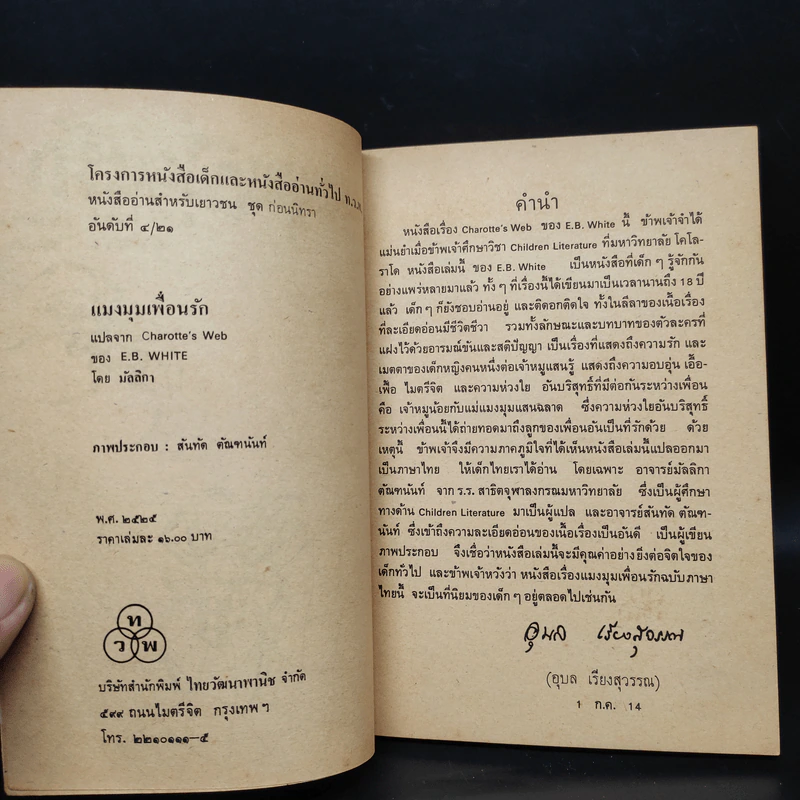 โครงการหนังสือเด็กและหนังสืออ่านทั่วไป ท.ว.พ.
หนังสืออ่านสำหรับเยาวชน ชุด ก่อนนิทรา
อันดับที่ ๔/๒๑
แมงมุมเพื่อนรัก
แปลจาก Charotte's Web
ของ E.B. WHITE
โดย มัลลิกา
ภาพประกอบ : สันทัด ตัณฑนันท์
พ.ศ. ๒๕๒๕
ราคาเล่มละ ๑๖.๐๐ บาท
ท
ว พ
บริษัทสำนักพิมพ์ ไทยวัฒนาพานิช จำกัด
๕๙๙ ถนนไมตรีจิต กรุงเทพ ฯ
โทร. ๒๒๑๐๑๑๑-๕
คำนำ
หนังสือเรื่อง Charotte's Web ของ E.B. White นี้ ข้าพเจ้าจำได้
แม่นยำเมื่อข้าพเจ้าศึกษาวิชา Children Literature ที่มหาวิทยาลัย โคโล-
ราโด หนังสือเล่มนี้ ของ E.B. White เป็นหนังสือที่เด็ก ๆ รู้จักกัน
อย่างแพร่หลายมาแล้ว ทั้ง ๆ ที่เรื่องนี้ได้เขียนมาเป็นเวลานานถึง 18 ปี
แล้ว เด็ก ๆ ก็ยังชอบอ่านอยู่ และติดอกติดใจ ทั้งในลีลาของเนื้อเรื่อง
ที่ละเอียดอ่อนมีชีวิตชีวา รวมทั้งลักษณะและบทบาทของตัวละครที่
แฝงไว้ด้วยอารมณ์ขันและสติปัญญา เป็นเรื่องที่แสดงถึงความรัก และ
เมตตาของเด็กหญิงคนหนึ่งต่อเจ้าหมูแสนรู้ แสดงถึงความอบอุ่น เอื้อ-
เฟื้อ ไมตรีจิต และความห่วงใย อันบริสุทธิ์ที่มีต่อกันระหว่างเพื่อน
คือ เจ้าหมูน้อยกับแม่แมงมุมแสนฉลาด ซึ่งความห่วงใยอันบริสุทธิ์
ระหว่างเพื่อนนี้ได้ถ่ายทอดมาถึงลูกของเพื่อนอันเป็นที่รักด้วย ด้วย
เหตุนี้ ข้าพเจ้าจึงมีความภาคภูมิใจที่ได้เห็นหนังสือเล่มนี้แปลออกมา
เป็นภาษาไทย ให้เด็กไทยเราได้อ่าน โดยเฉพาะ อาจารย์มัลลิกา
ตัณฑนันท์ จาก ร.ร. สาธิตจุฬาลงกรณมหาวิทยาลัย ซึ่งเป็นผู้ศึกษา
ทางด้าน Children Literature มาเป็นผู้แปล และอาจารย์สันทัด ตัณฑ-
นันท์ ซึ่งเข้าถึงความละเอียดอ่อนของเนื้อเรื่องเป็นอันดี เป็นผู้เขียน
ภาพประกอบ จึงเชื่อว่าหนังสือเล่มนี้จะมีคุณค่าอย่างยิ่งต่อจิตใจของ
เด็กทั่วไป และข้าพเจ้าหวังว่า หนังสือเรื่องแมงมุมเพื่อนรักฉบับภาษา
ไทยนี้ จะเป็นที่นิยมของเด็ก ๆ อยู่ตลอดไปเช่นกัน
อุบล เรียงสุวรรณ
(อุบล เรียงสุวรรณ)
1 ก.ค. 14